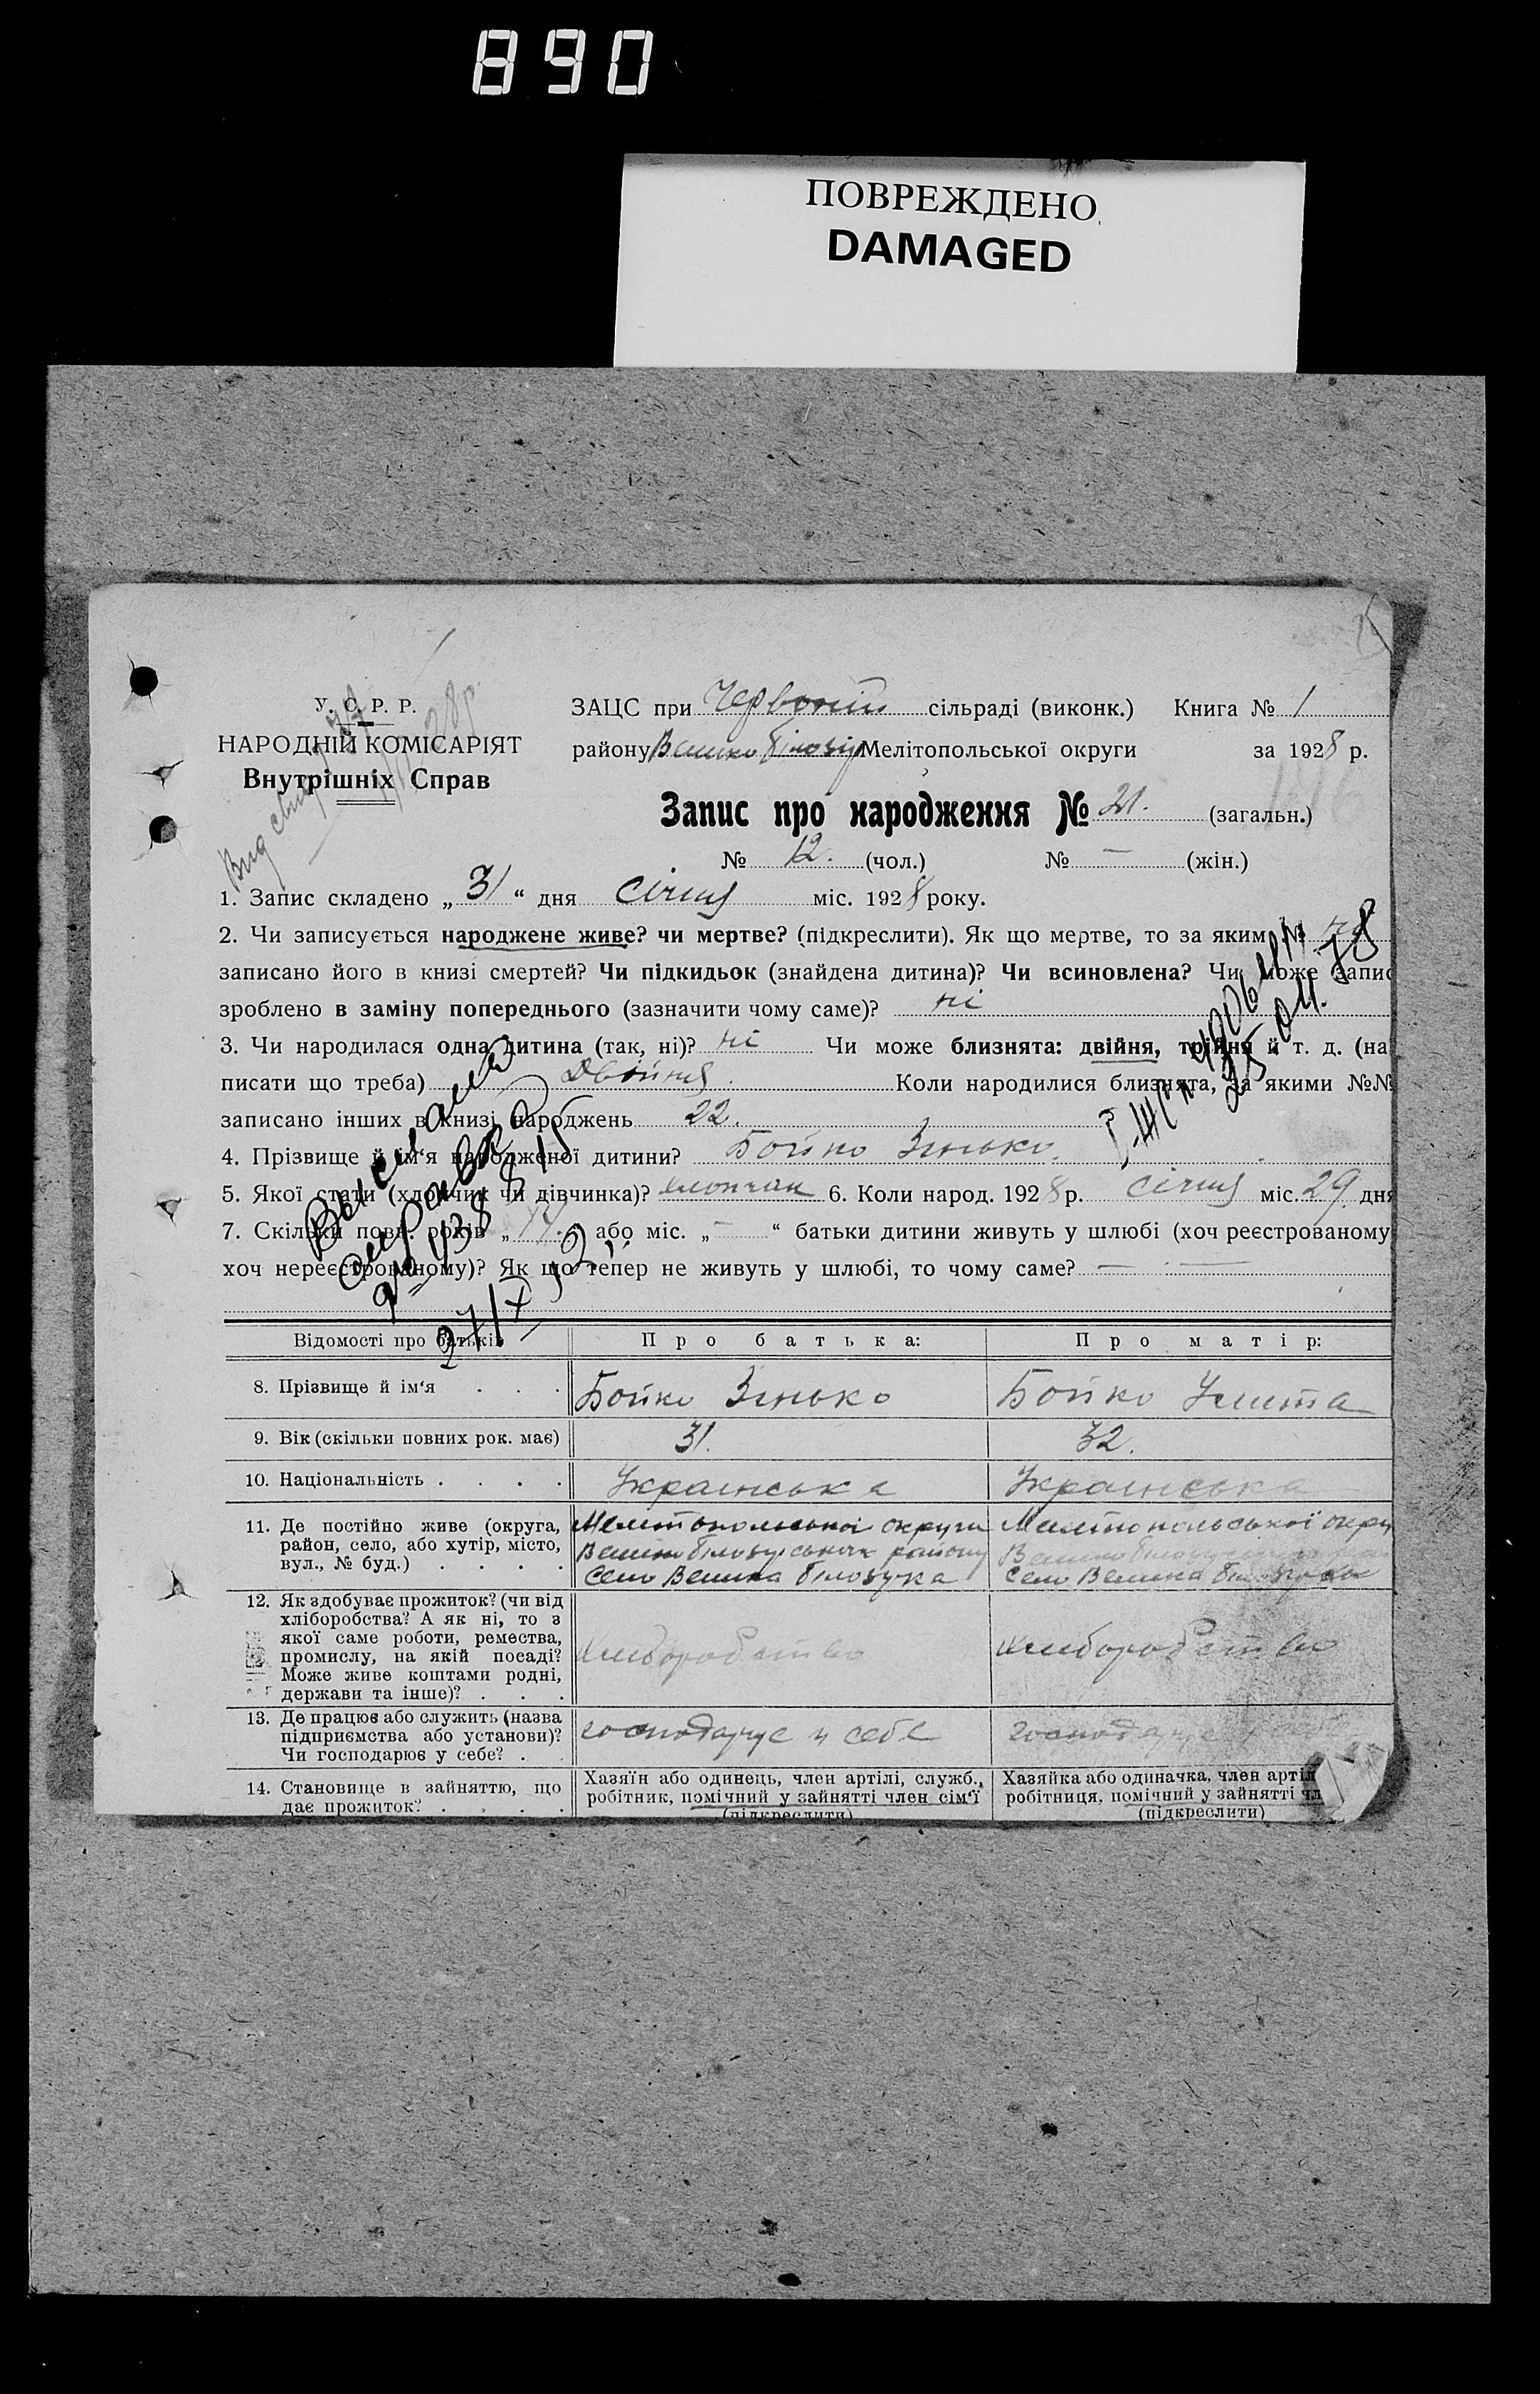 890
ПОВРЕЖДЕНО
DAMAGED
У. С. Р. Р.
НАРОДНІЙ КОМІСАРІЯТ
Внутрішніх Справ
ЗАЦС при Червоній сільраді (виконк.) Книга № 1
району Велико Білозір Мелітопольської округи за 1928 р.
Запис про народження № 21. (загальн.)
№ 12. (чол.) № — (жін.)
1. Запис складено „ 31 “ дня січня міс. 1928 року.
2. Чи записується народжене живе? чи мертве? (підкреслити). Як що мертве, то за яким №
записано його в книзі смертей? Чи підкидьок (знайдена дитина)? Чи всиновлена? Чи може запис
зроблено в заміну попереднього (зазначити чому саме)? ні
3. Чи народилася одна дитина (так, ні)? ні Чи може близнята: двійня, трійня й т. д. (на
писати що треба) Двойня Коли народилися близнята, за якими №№
записано інших в книзі народжень 22.
4. Прізвище й ім‘я народженої дитини? Бойко Зінько.
5. Якої стати (хлопчик чи дівчинка)? хлопчик 6. Коли народ. 1928 р. січня міс. 29 дня
7. Скільки повн. років „ “ або міс. „ — “ батьки дитини живуть у шлюбі (хоч реєстрованому
хоч нереєстрованому)? Як що тепер не живуть у шлюбі, то чому саме? —
Выслана
справка
27/X
Відомості про батьків Про батька: Про матір:
8. Прізвище й ім‘я . . . Бойко Зінько Бойко Улита
9. Вік (скільки повних рок. має) 31. 32.
10. Національність . . . . Українська Українська
11. Де постійно живе (округа,
район, село, або хутір, місто,
вул., № буд.) . . . .
Мелітопольської округи
Велико білозірського району
Село Велика білозірка
Мелітопольської окру
Село Велика
12. Як здобуває прожиток? (чи від
хліборобства? А як ні, то з
якої саме роботи, ремества,
промислу, на якій посаді?
Може живе коштами родні,
держави та інше)? . . .
хліборобство хліборобство
13. Де працює або служить (назва
підприємства або установи)?
Чи господарює у себе? . .
господарує у себе господарує
14. Становище в зайняттю, що
дає прожиток? . . . .
Хазяїн або одинець, член артілі, служб.,
робітник, помічний у зайнятті член сім‘ї
(підкреслити)
Хазяйка або одиначка, член артіл
робітниця, помічний у зайнятті чл
(підкреслити)